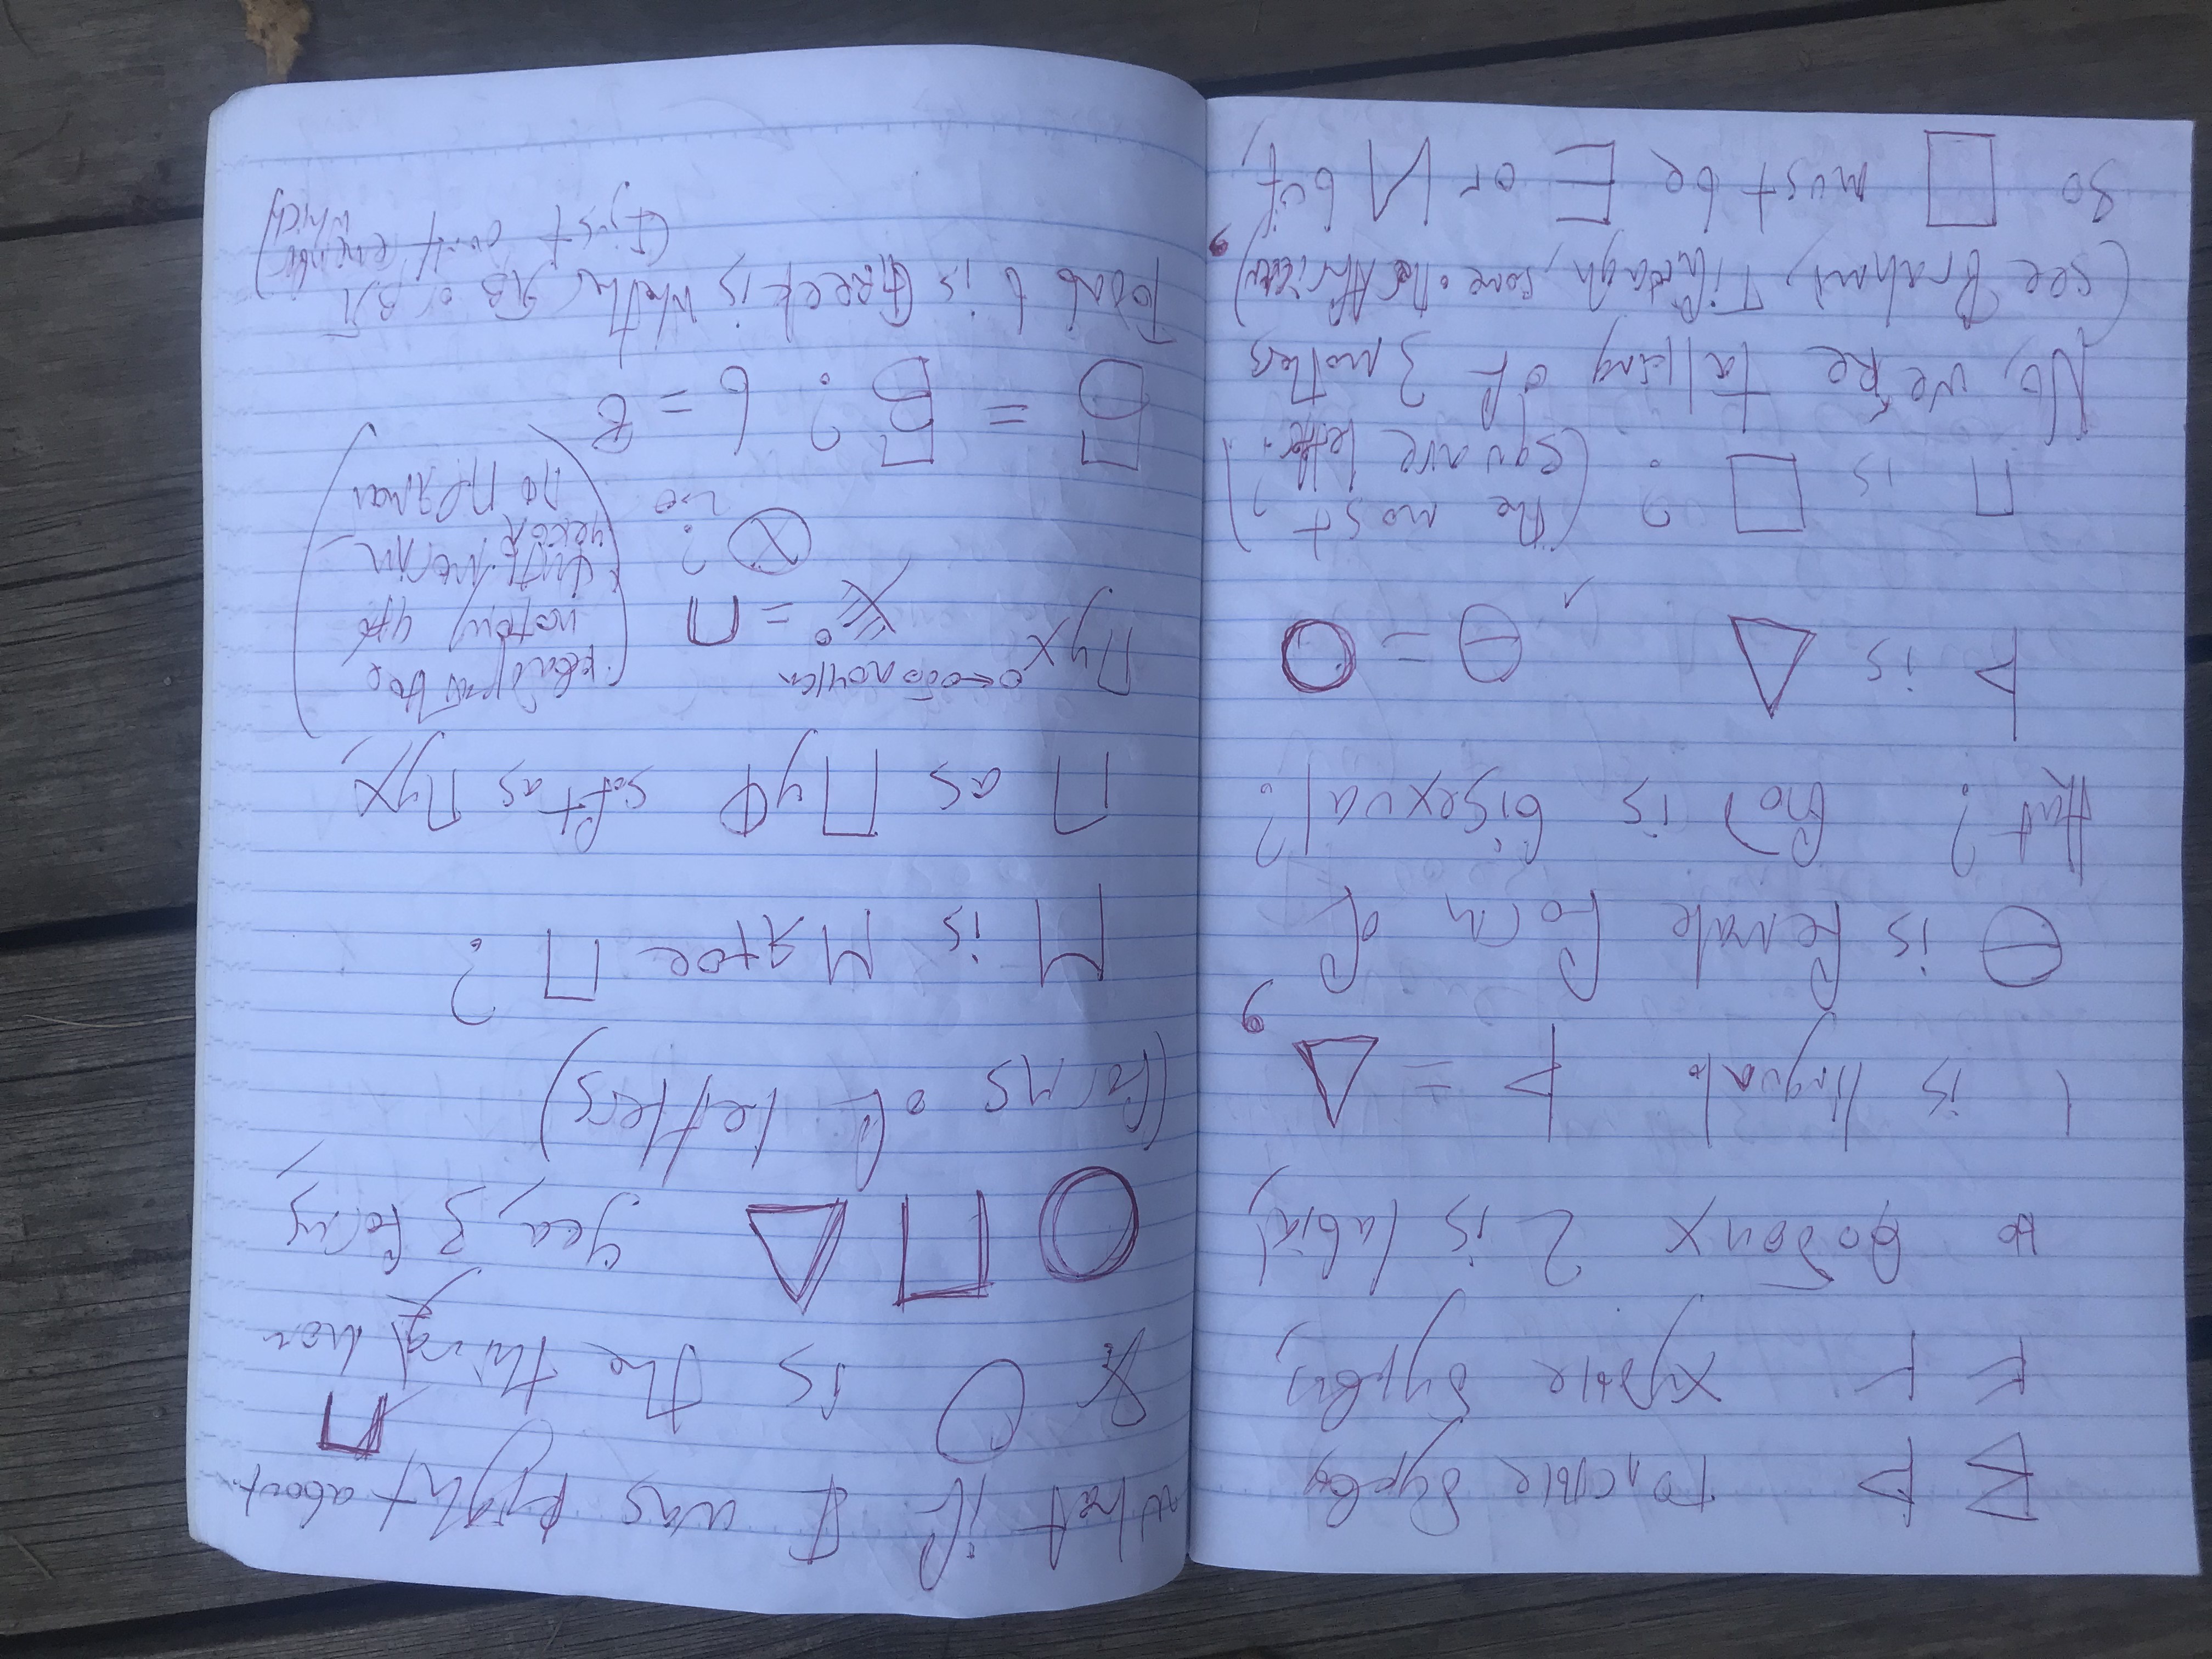 B Þ толстые буквы
F Ͱ худые буквы,
но в обоих 2 is labial,
1 is lingual. Þ = Δ,
Θ is female form of
that? God is bisexual?
Þ is Δ, Θ = O
П is □ ? (the most
square letter?)
No, we're talking of 3 mothers
(see Brahmi, Tifinagh, some other African),
so □ must be E or И but,
What if I was right about
& O is the thing, П
О П Δ yea, 3 forms,
(forms of letters)
M is Мятое П?
П as ПуФ soft as Пух,
Пух о←оболочка
= П
(квадратное
потому что
могли
по прямой)
Ⓧ ?
Б = ? b = в
b is Greek is whether ЯВ or ВЯ
(I just don't remember
which)